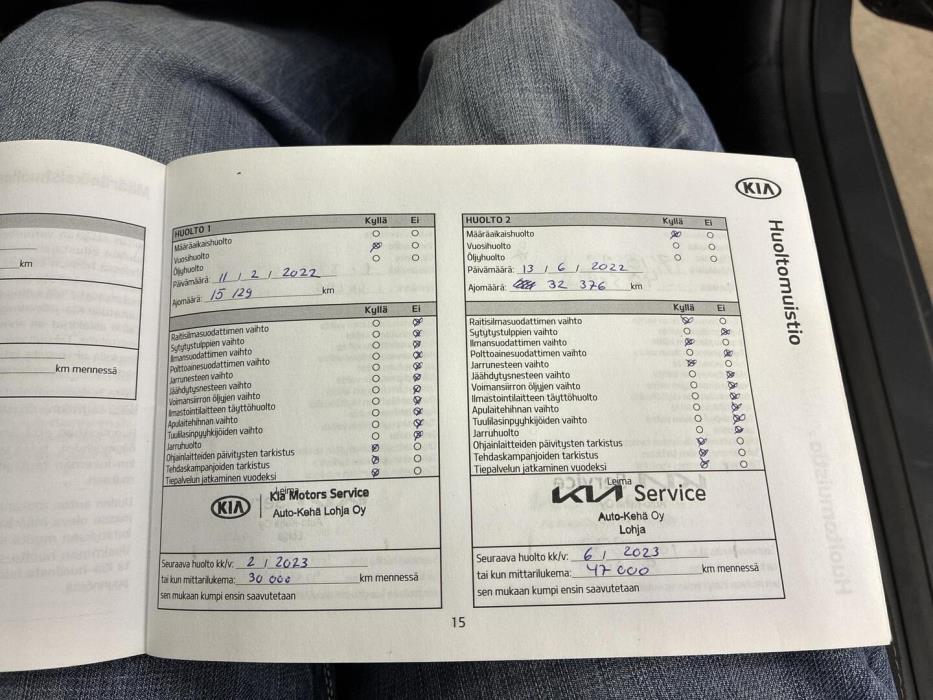 km
km mennessä
KIA
Huoltomuistio
HUOLTO 1 Kyllä Ei
Määräaikaishuolto
Vuosihuolto
Öljyhuolto
Päivämäärä: 11 / 2 / 2022
Ajomäärä: 15 129 km
Kyllä Ei
Raitisilmasuodattimen vaihto
Sytytystulppien vaihto
Ilmansuodattimen vaihto
Polttoainesuodattimen vaihto
Jarrunesteen vaihto
Jäähdytysnesteen vaihto
Voimansiirron öljyjen vaihto
Ilmastointilaitteen täyttöhuolto
Apulaitehihnan vaihto
Tuulilasinpyyhkijöiden vaihto
Jarruhuolto
Ohjainlaitteiden päivitysten tarkistus
Tehdaskampanjoiden tarkistus
Tiepalvelun jatkaminen vuodeksi
Leima
KIA Kia Motors Service
Auto-Kehä Lohja Oy
Seuraava huolto kk/v: 2 / 2023
tai kun mittarilukema: 30 000 km mennessä
sen mukaan kumpi ensin saavutetaan
HUOLTO 2 Kyllä Ei
Määräaikaishuolto
Vuosihuolto
Öljyhuolto
Päivämäärä: 13 / 6 / 2022
Ajomäärä: 32 376 km
Kyllä Ei
Raitisilmasuodattimen vaihto
Sytytystulppien vaihto
Ilmansuodattimen vaihto
Polttoainesuodattimen vaihto
Jarrunesteen vaihto
Jäähdytysnesteen vaihto
Voimansiirron öljyjen vaihto
Ilmastointilaitteen täyttöhuolto
Apulaitehihnan vaihto
Tuulilasinpyyhkijöiden vaihto
Jarruhuolto
Ohjainlaitteiden päivitysten tarkistus
Tehdaskampanjoiden tarkistus
Tiepalvelun jatkaminen vuodeksi
Leima
KIA Service
Auto-Kehä Oy
Lohja
Seuraava huolto kk/v: 6 / 2023
tai kun mittarilukema: 47 000 km mennessä
sen mukaan kumpi ensin saavutetaan
15